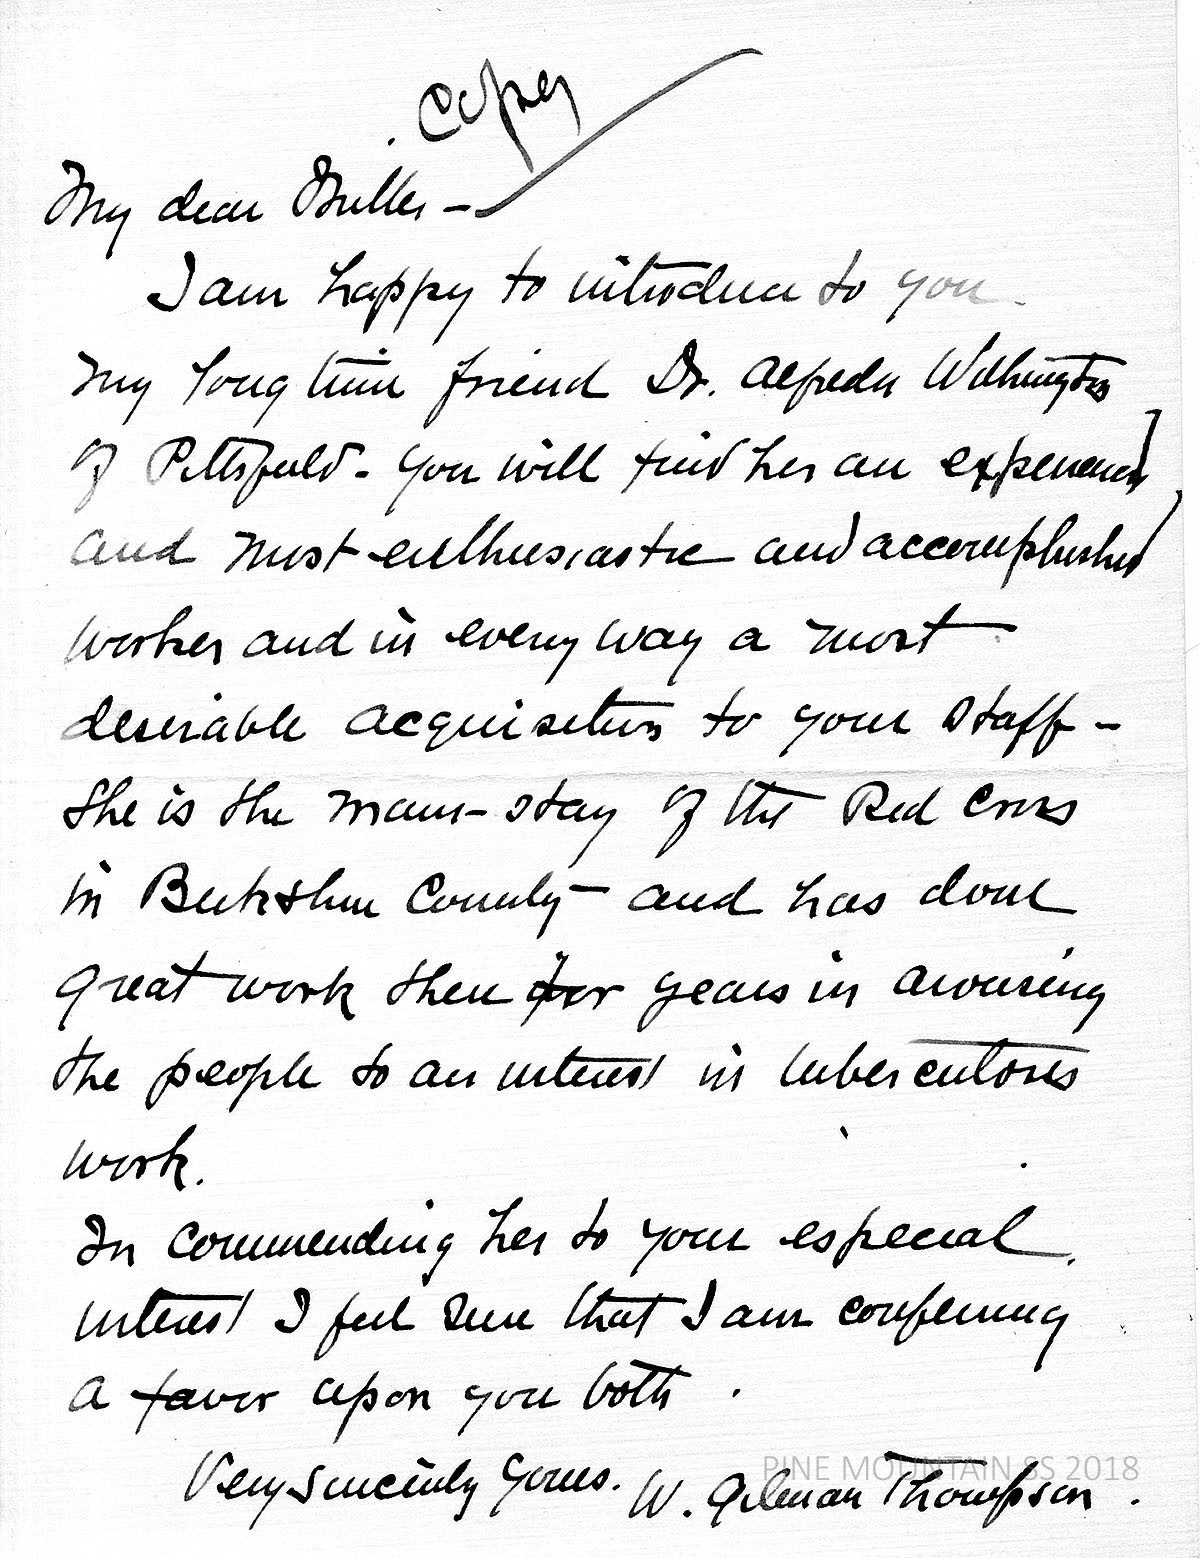 Copy
My dear Miller -
I am happy to introduce to you
my long time friend Dr. Alfreda Withington
of Pittsfield - you will find her an experienced
and most enthusiastic and accomplished
worker and in every way a most
desirable acquisition to your staff -
She is the main-stay of the Red Cross
in Berkshire County - and has done
great work there for years in arousing
the people to an interest in tuberculosis
work.
In commending her to your especial
interest I feel sure that I am conferring
a favor upon you both.
Very sincerely yours. W. Gilman Thompson.
PINE MOUNTAIN SS 2018